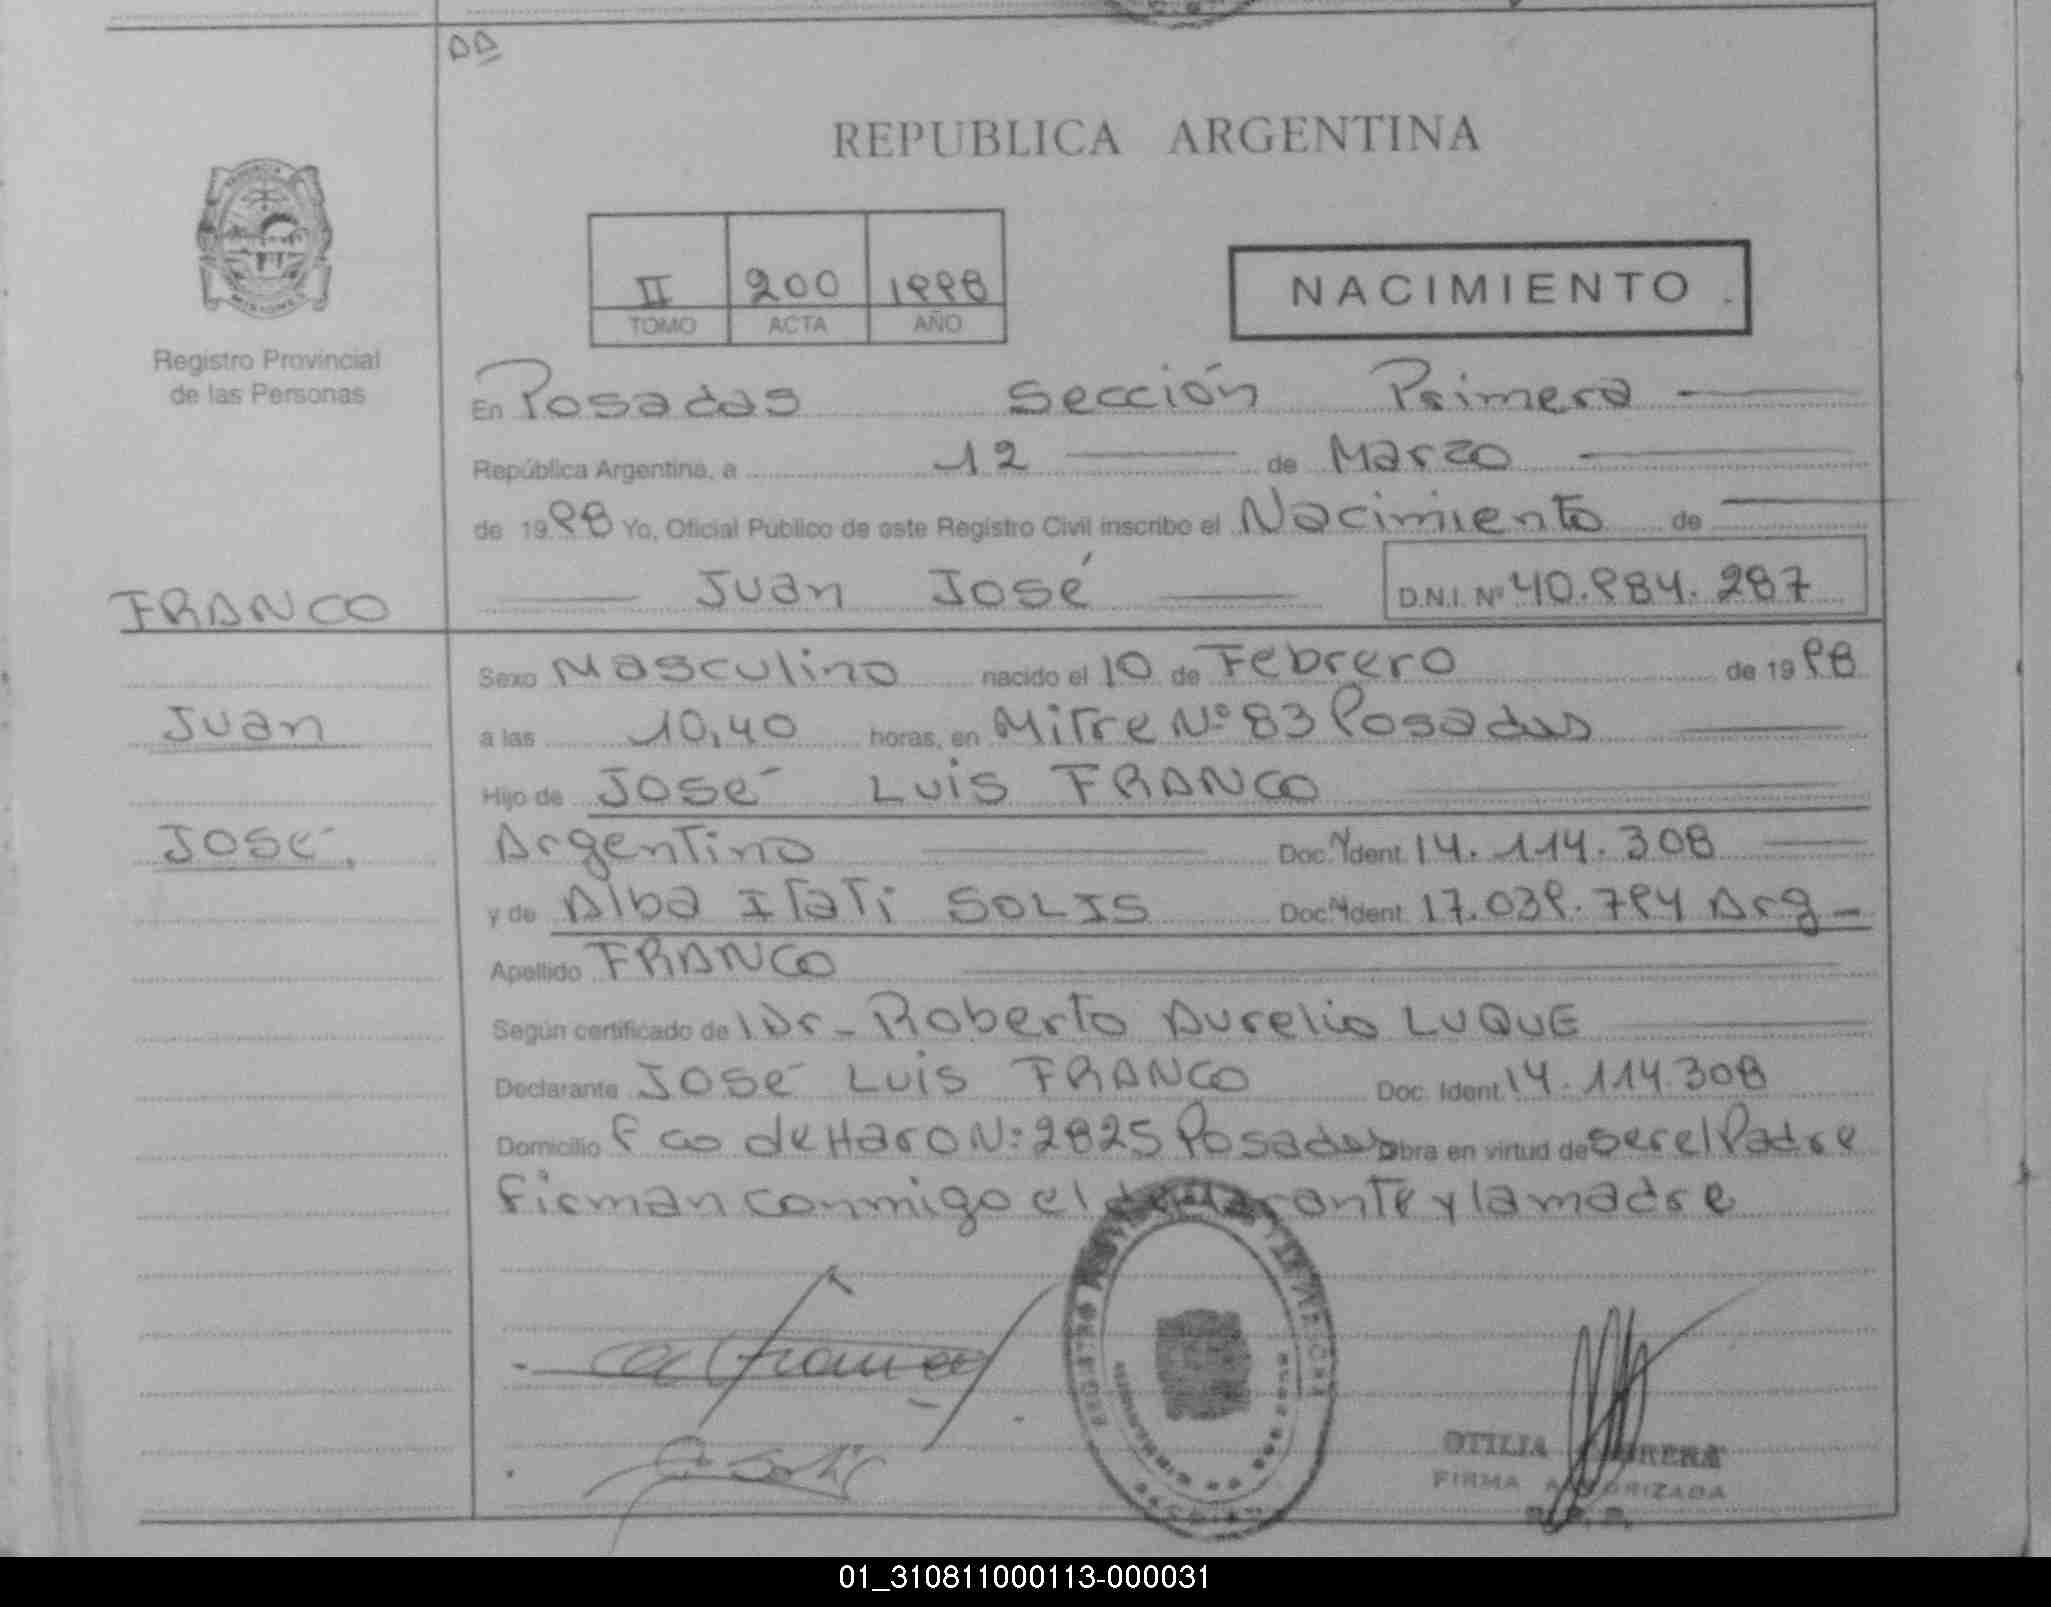 DD
REPUBLICA ARGENTINA
II 200 1998
TOMO ACTA AÑO
NACIMIENTO
Registro Provincial
de las Personas
En Posadas Sección Primera
República Argentina, a 12 de Marzo
de 1998 Yo, Oficial Publico de este Registro Civil inscribo el Nacimiento de
FRANCO
Juan José D.N.I. Nº 40.984.287
Sexo Masculino nacido el 10 de Febrero de 1998
Juan
a las 10,40 horas, en Mitre Nº 83 Posadas
Hijo de José Luis FRANCO
José.
Argentino Doc. Ident. 14.114.308
y de Alba Itatí SOLIS Doc. Ident. 17.039.794 Arg
Apellido FRANCO
Según certificado de Dr. Roberto Aurelio LUQUE
Declarante José Luis FRANCO Doc. Ident. 14.114.308
Domicilio Fco de Haro Nº 2825 Posadas obra en virtud de ser el Padre
Firman conmigo el declarante y la madre
OTILIA
FIRMA AUTORIZADA
01_310811000113-000031